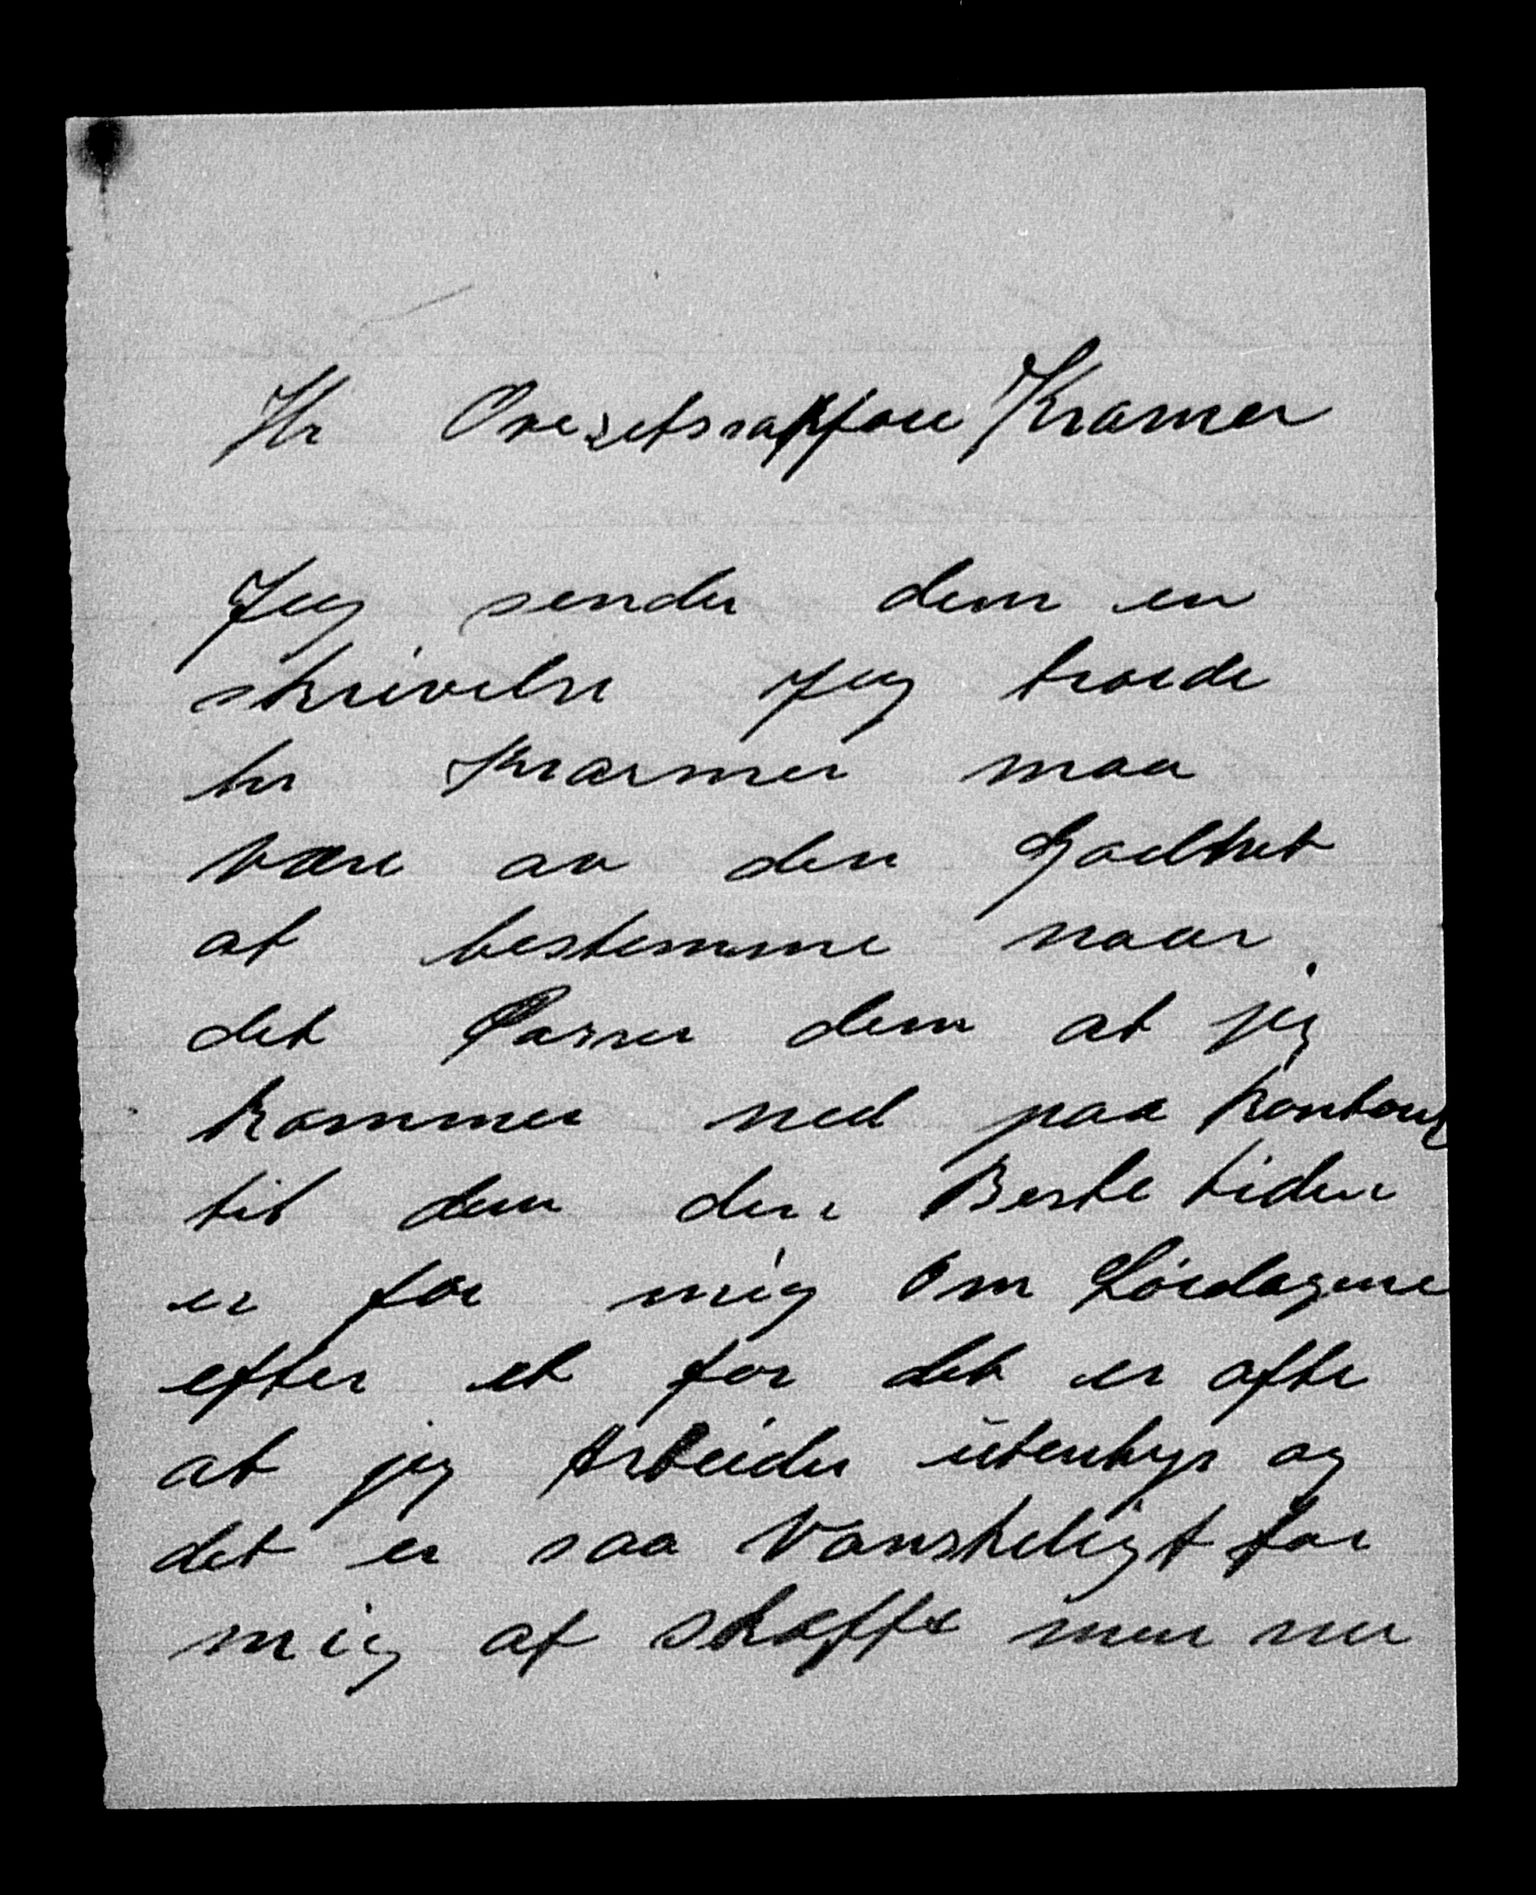 Hr Overetssakføre Kramer
Jeg sender dem en
skrivelse Jeg troede
hr Kramer maa
være av den Godhet
at bestemme naar
det Passer dem at jeg
kommer ned paa kontour
til dem den Beste tiden
er for mig Om Lørdagene
efter et for det er ofte
at jeg Arbeider utenbys og
det er saa Vanskeligt for
mig at skaffe men nu